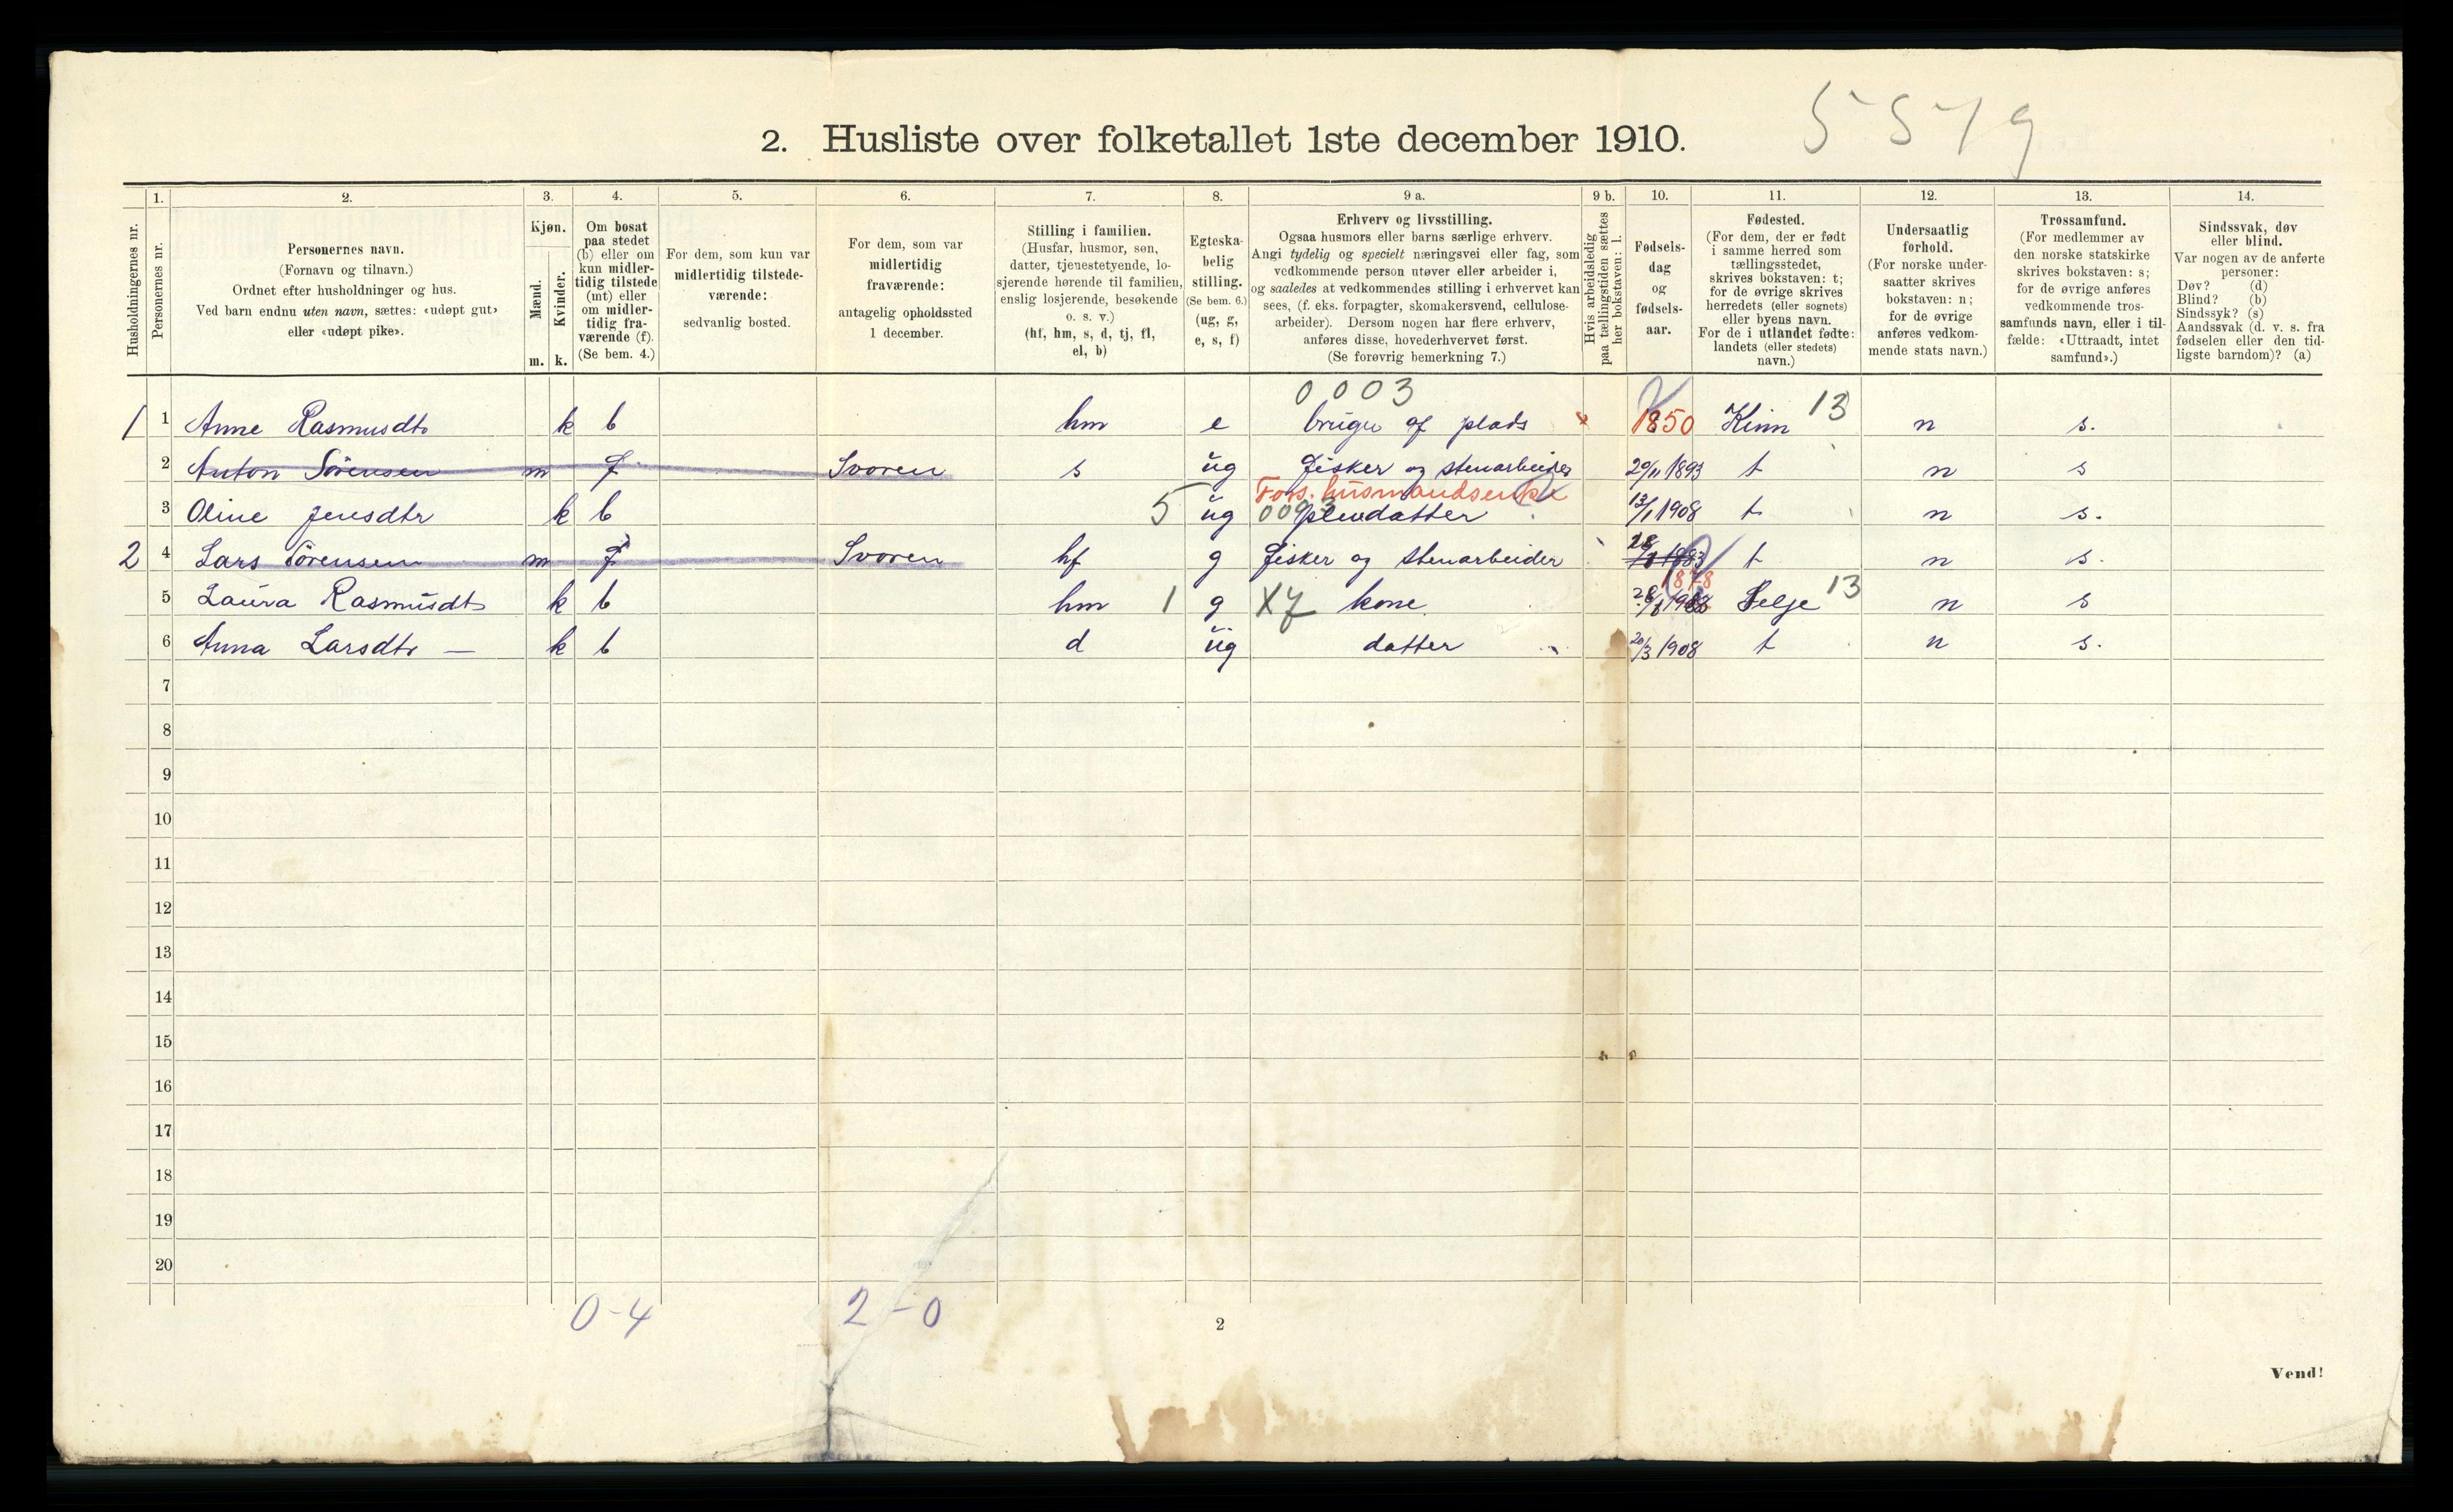 5579
2. Husliste over folketallet 1ste december 1910.
1. 2. 3. 4. 5. 6. 7. 8. 9 a. 9 b. 10. 11. 12. 13. 14.
Husholdningernes nr.
Personernes nr.
Personernes navn.
(Fornavn og tilnavn.)
Ordnet efter husholdninger og hus.
Ved barn endnu uten navn, sættes: «udøpt gut»
eller «udøpt pike».
Kjøn.
Mænd.
m.
Kvinder.
k.
Om bosat
paa stedet
(b) eller om
kun midler-
tidig tilstede
(mt) eller
om midler-
tidig fra-
værende (f).
(Se bem. 4.)
For dem, som kun var
midlertidig tilstede-
værende:
sedvanlig bosted.
For dem, som var
midlertidig
fraværende:
antagelig opholdssted
1 december.
Stilling i familien.
(Husfar, husmor, søn,
datter, tjenestetyende, lo-
sjerende hørende til familien,
enslig losjerende, besøkende
o. s. v.)
(hf, hm, s, d, tj, fl,
el, b)
Egteska-
belig
stilling.
(Se bem. 6.)
(ug, g,
e, s, f)
Erhverv og livsstilling.
Ogsaa husmors eller barns særlige erhverv.
Angi tydelig og specielt næringsvei eller fag, som
vedkommende person utøver eller arbeider i,
og saaledes at vedkommendes stilling i erhvervet kan
sees, (f. eks. forpagter, skomakersvend, cellulose-
arbeider). Dersom nogen har flere erhverv,
anføres disse, hovederhvervet først.
(Se forøvrig bemerkning 7.)
Hvis arbeidsledig
paa tællingstiden sættes
her bokstaven: l.
Fødsels-
dag
og
fødsels-
aar.
Fødested.
(For dem, der er født
i samme herred som
tællingsstedet,
skrives bokstaven: t;
for de øvrige skrives
herredets (eller sognets)
eller byens navn.
For de i utlandet fødte:
landets (eller stedets)
navn.)
Undersaatlig
forhold.
(For norske under-
saatter skrives
bokstaven: n;
for de øvrige
anføres vedkom-
mende stats navn.)
Trossamfund.
(For medlemmer av
den norske statskirke
skrives bokstaven: s;
for de øvrige anføres
vedkommende tros-
samfunds navn, eller i til-
fælde: «Uttraadt, intet
samfund».)
Sindssvak, døv
eller blind.
Var nogen av de anførte
personer:
Døv? (d)
Blind? (b)
Sindssyk? (s)
Aandssvak (d. v. s. fra
fødselen eller den tid-
ligste barndom)? (a)
0003
1 1 Anne Rasmusdtr k b hm e bruger af plads 1850 Kinn 13 n s.
2 Anton Sörensen m f Svoren s ug fisker og stenarbeider 20/11 1893 t n s
Fors. husmandsenke
3 Oline Jensdtr k b 5 ug 0093 pleiedatter 13/1 1908 t n s.
2 4 Lars Sörensen m f Svoren hf g fisker og stenarbeider 1883 t n s.
1878
5 Laura Rasmusdtr k b hm 1 g X7 kone Selje 13 n s
6 Anna Larsdtr — k b d ug datter 20/3 1908 t n s.
7
8
9
10
11
12
13
14
15
16
17
18
19
20
0-4 2-0
2
Vend!